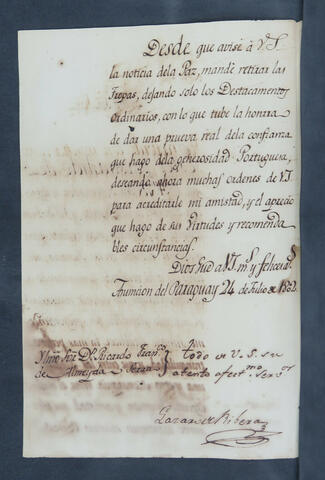 Desde que avisé à V.S.
la noticia dela Paz, mandé retirar las
Tropas, dejando solo los Destacamentos
ordinarios, con lo que tube la honrra
de dar una prueva real dela confianza
que hago dela generosidad Portuguesa,
deseando ahora muchas ordenes de V.S.
para acreditarle mi amistad, y el aprecio
que hago de sus Virtudes y recomenda
bles circunstancias.
Dios gue a V.S. ms. y felices as.
Asuncion del Paraguay 24 de Julio de 1802.
Ylmo Sor Dn. Ricardo Franco
de Almeyda Serra
}
de V.S. su
atento
Lazaro de Ribera